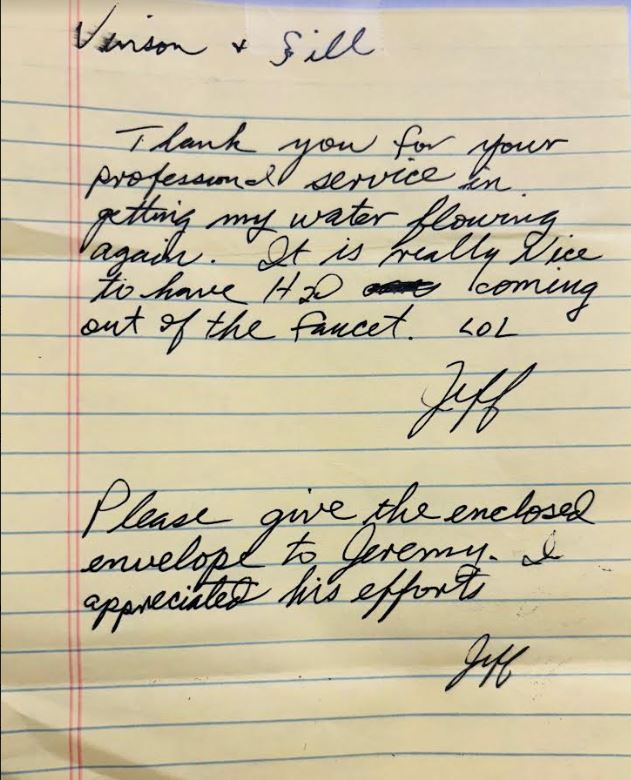 Vinson + Gill
Thank you for your
professional service in
getting my water flowing
again. It is really Nice
to have H2O coming
out of the faucet. LOL
Jeff
Please give the enclosed
envelope to Jeremy. I
appreciated his efforts
Jeff